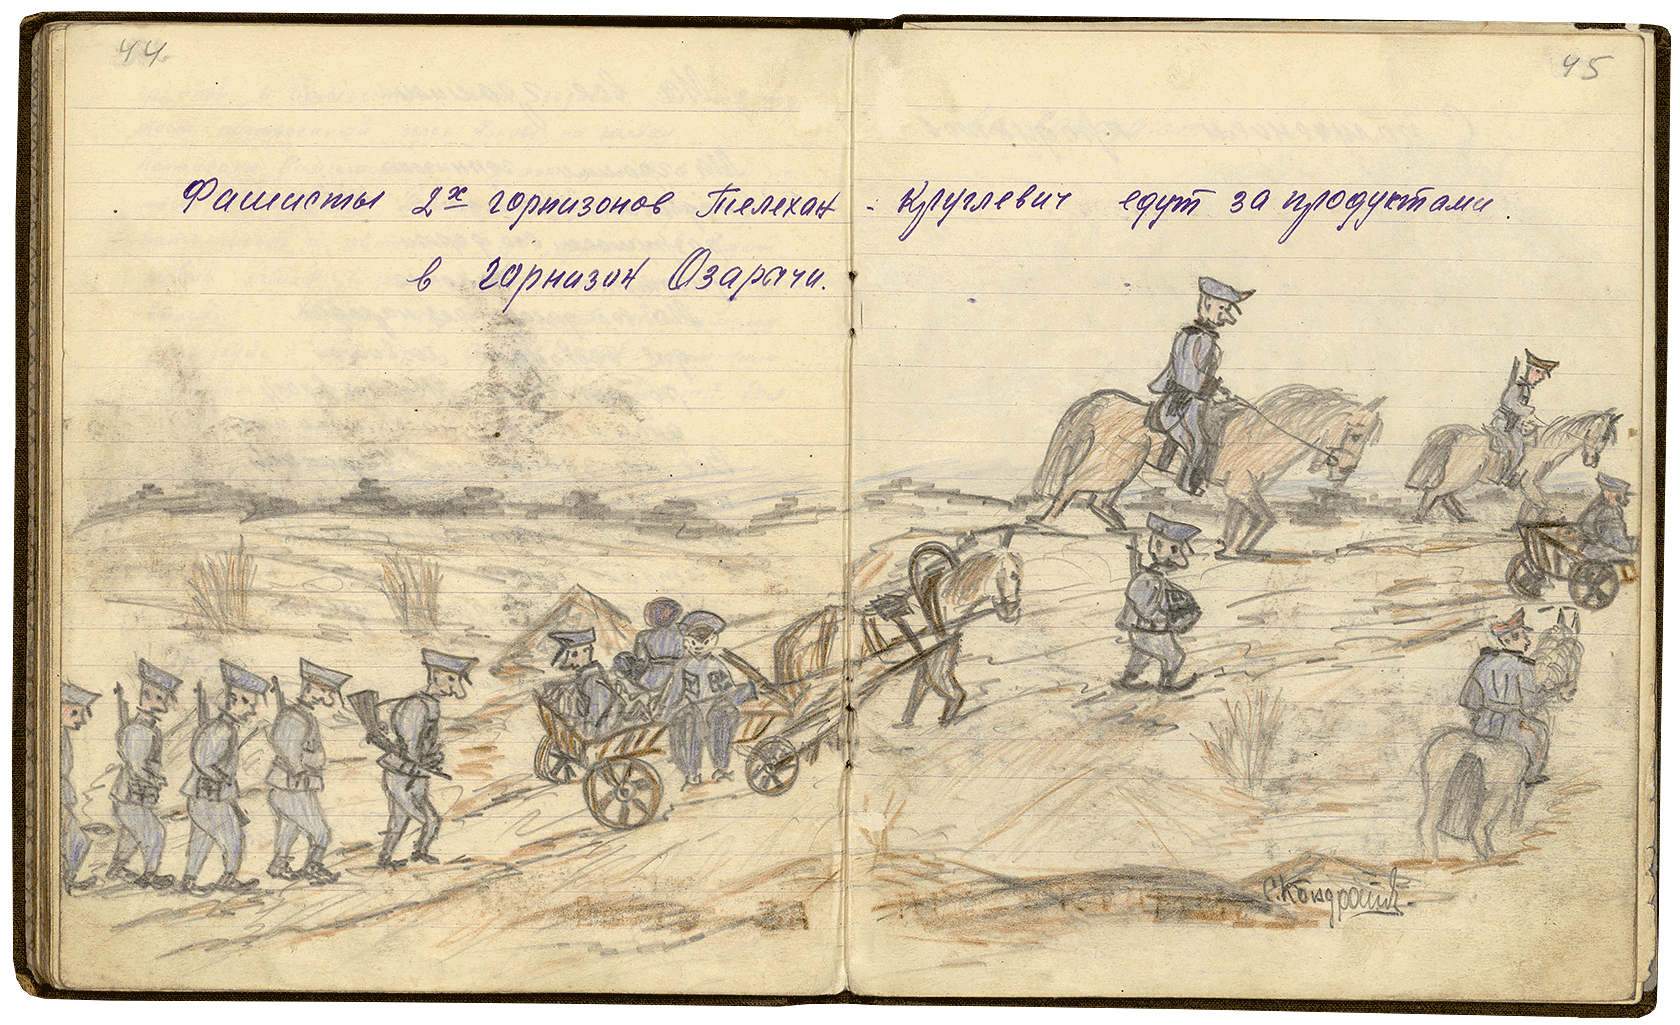 44
45
Фашисты 2х горнизонов Телехан - Круглевич едут за продуктами
в горнизон Озаричи.
С. Кондрашин